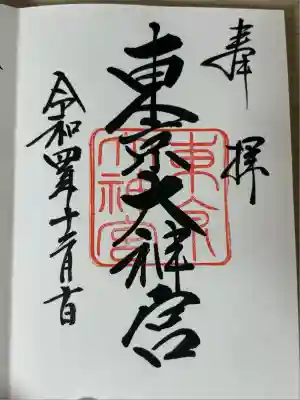 奉拝
東京大神宮
東京
大神宮
令和四年十二月十日